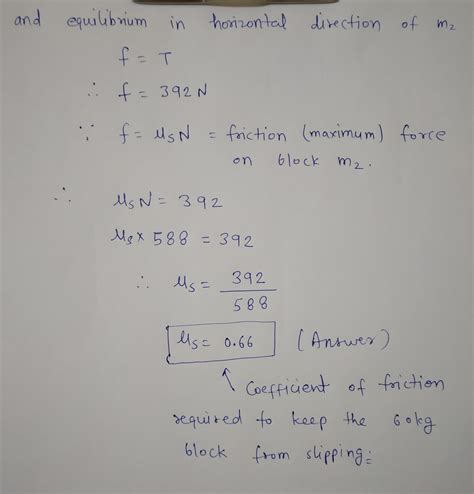 and equilibrium in horizontal direction of m₂
f = T
∴ f = 392 N
∵ f = μₛN = friction (maximum) force
on block m₂.
∴ μₛN = 392
μₛ × 588 = 392
∴ μₛ = 392
588
μₛ = 0.66 (Answer)
↑ Coefficient of friction
required to keep the 60kg
block from slipping.